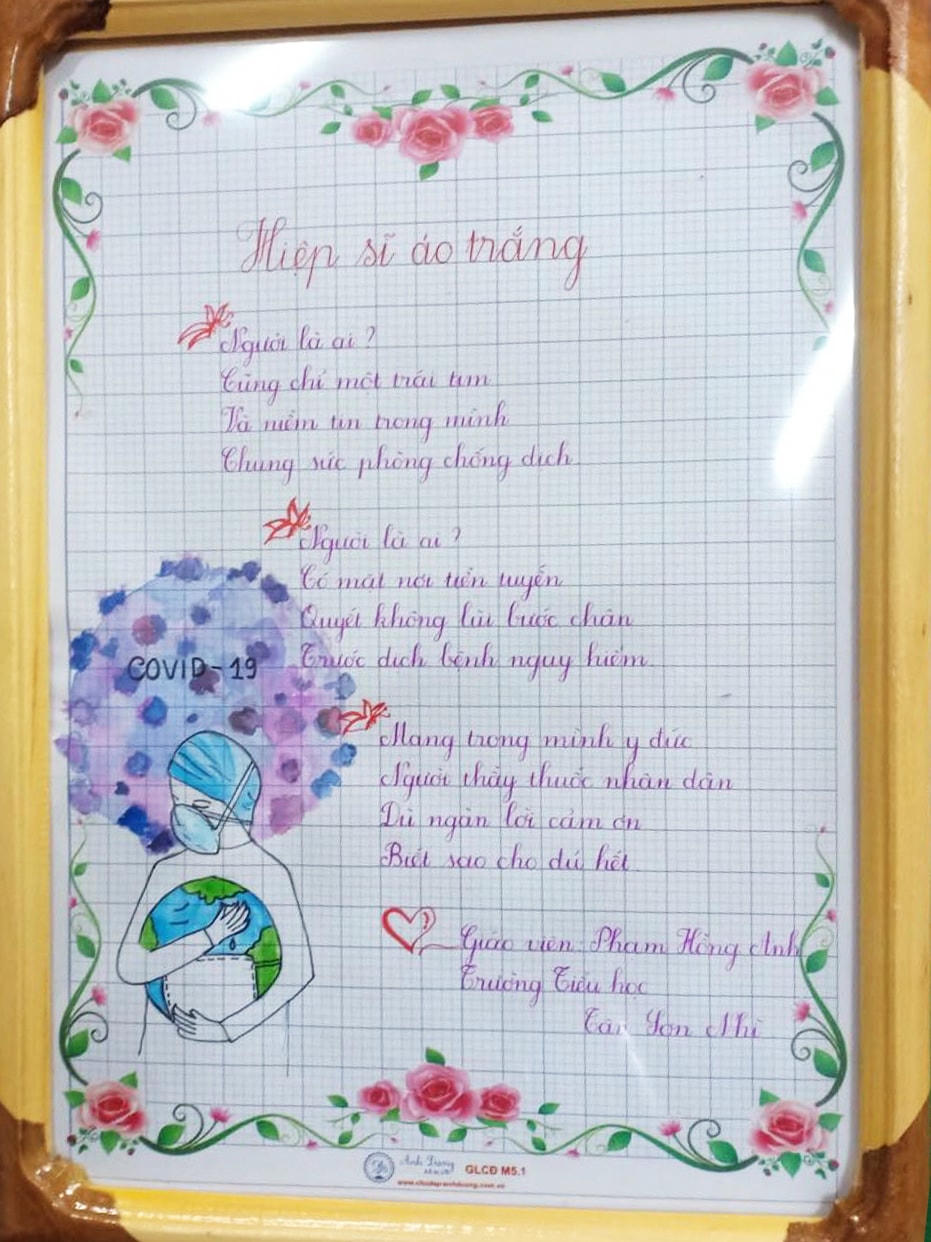 Hiệp sĩ áo trắng
Người là ai?
Cùng chỉ một trái tim
Và niềm tin trong mình
Chung sức phòng chống dịch.
Người là ai?
Có mặt nơi tiền tuyến
Quyết không lùi bước chân
Trước dịch bệnh nguy hiểm.
COVID-19
Mang trong mình y đức
Người thầy thuốc nhân dân
Dù ngàn lời cảm ơn
Biết sao cho đủ hết.
Giáo viên Phạm Hồng Anh
Trường Tiểu học
Tân Sơn Nhì
Ánh Dương
GLCĐ M5.1